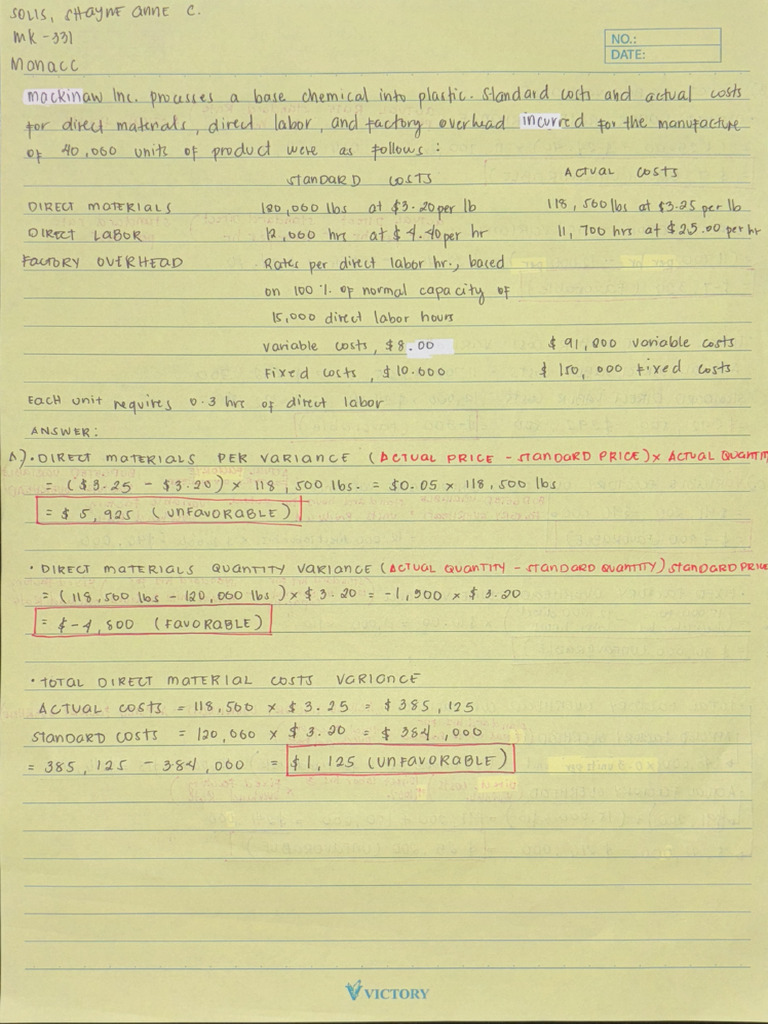 SOLIS, SHAYNE ANNE C.
MK-331
Monacc
NO.:
DATE:
Mackinaw Inc. processes a base chemical into plastic. Standard costs and actual costs
for direct materials, direct labor, and factory overhead incurred for the manufacture
of 40,000 units of product were as follows:
STANDARD COSTS ACTUAL COSTS
DIRECT MATERIALS 120,000 lbs at $3.20 per lb 118,500 lbs at $3.25 per lb
DIRECT LABOR 12,000 hrs at $4.40 per hr 11,700 hrs at $25.00 per hr
FACTORY OVERHEAD Rates per direct labor hr., based
on 100% of normal capacity of
15,000 direct labor hours
Variable costs, $8.00 $91,800 variable costs
Fixed costs, $10.000 $150,000 fixed costs
Each unit requires 0.3 hrs of direct labor
ANSWER:
A.) • DIRECT MATERIALS PER VARIANCE (ACTUAL PRICE - STANDARD PRICE) x ACTUAL QUANTITY
= ($3.25 - $3.20) x 118,500 lbs. = $0.05 x 118,500 lbs
= $5,925 (UNFAVORABLE)
• DIRECT MATERIALS QUANTITY VARIANCE (ACTUAL QUANTITY - STANDARD QUANTITY) STANDARD PRICE
= (118,500 lbs - 120,000 lbs) x $3.20 = -1,500 x $3.20
= $-4,800 (FAVORABLE)
• TOTAL DIRECT MATERIAL COSTS VARIANCE
ACTUAL COSTS = 118,500 x $3.25 = $385,125
STANDARD COSTS = 120,000 x $3.20 = $384,000
= 385,125 - 384,000 = $1,125 (UNFAVORABLE)
VICTORY